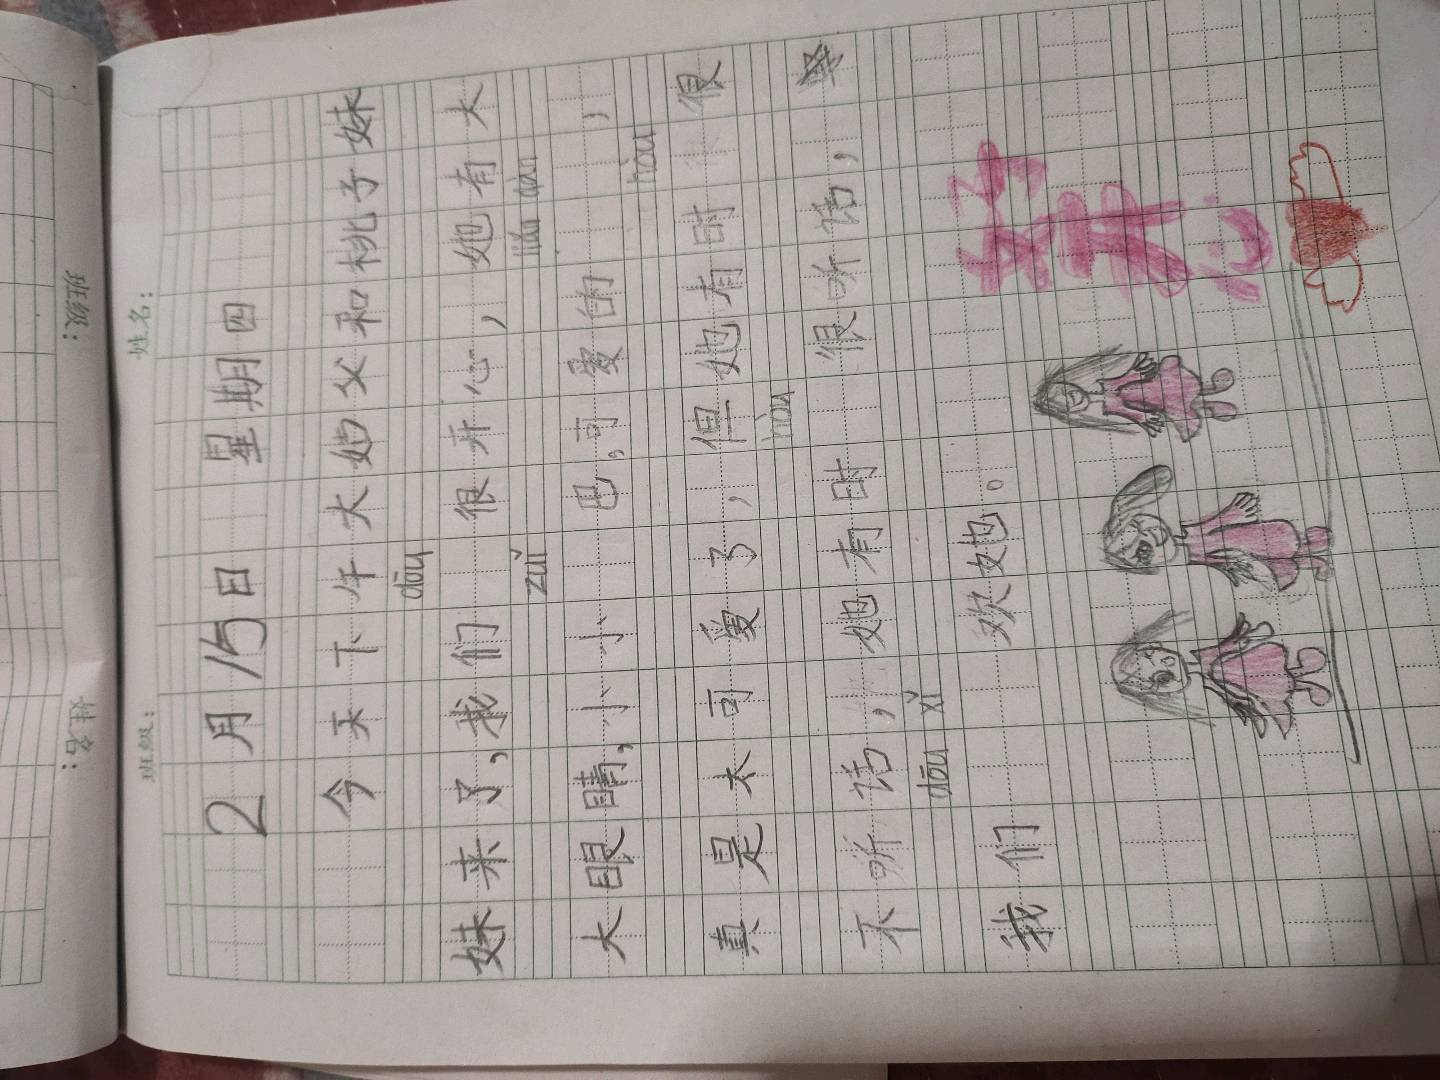 班级: 姓名:
姓名: 班级:
2月15日 星期四
今天下午大她父和桃子妹
dōu
妹来了,我们 很开心,她有大
zuǐ liǎn dàn
大眼睛,小小 巴,可爱的 ,
hòu
真是太可爱了,但她有时 很
hòu
不听话,她有时 很听话,
dōu xǐ
我们 欢她。
好开心